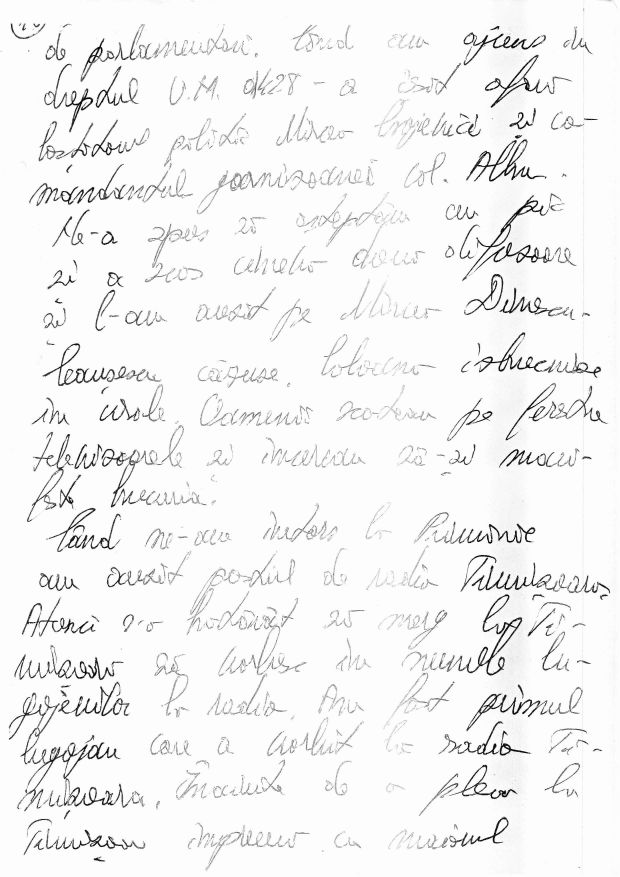 de parlamentari. Când am ajuns în
dreptul U.M. 01428 - a ieșit afară
locotenent poliție Mircea și co-
mandantul garnizoanei col. Albu.
Ne-a spus să așteptăm un pic
și a scos câteva difuzoare
și l-am auzit pe Mircea Dinescu.
Ceaușescu căzuse. Valoarea izbucnise
în urale. Oamenii scoteau pe ferestre
televizoarele și încercau să-și mani-
feste bucuria.
Când ne-am întors la Primărie
am auzit postul de radio Timișoara.
Atunci s-a hotărât să merg la Ti-
mișoara să vorbesc în numele lu-
gojenilor la radio. Am fost primul
lugojan care a vorbit la radio Ti-
mișoara. Înainte de a pleca la
Timișoara împreună cu maiorul